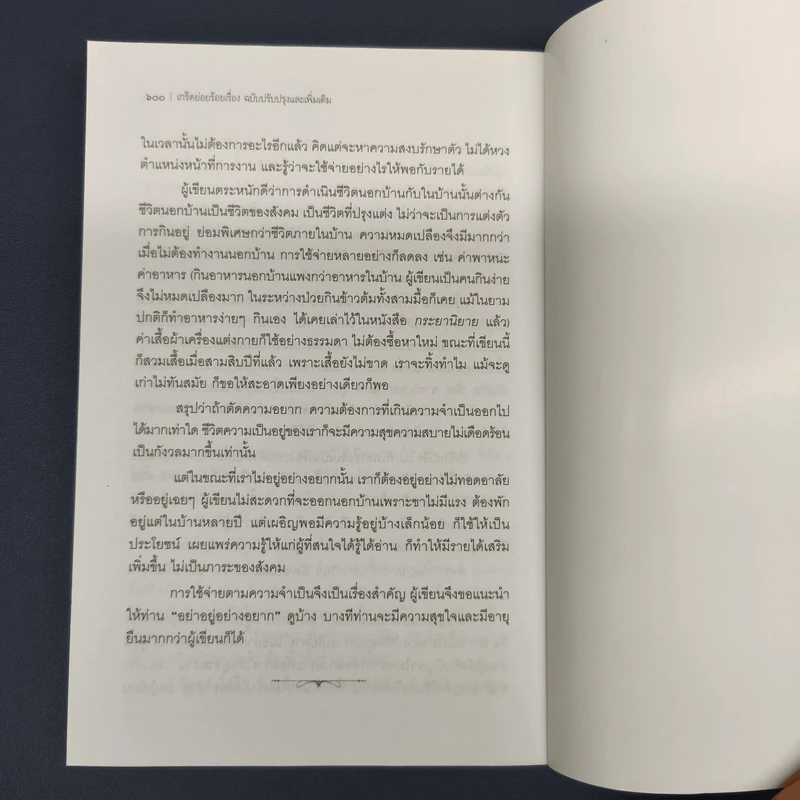 ๖๐๐ | เกร็ดย่อยร้อยเรื่อง ฉบับปรับปรุงและเพิ่มเติม
ในเวลานั้นไม่ต้องการอะไรอีกแล้ว คิดแต่จะหาความสงบรักษาตัว ไม่ได้หวง
ตำแหน่งหน้าที่การงาน และรู้ว่าจะใช้จ่ายอย่างไรให้พอกับรายได้
ผู้เขียนตระหนักดีว่าการดำเนินชีวิตนอกบ้านกับในบ้านนั้นต่างกัน
ชีวิตนอกบ้านเป็นชีวิตของสังคม เป็นชีวิตที่ปรุงแต่ง ไม่ว่าจะเป็นการแต่งตัว
การกินอยู่ ย่อมพิเศษกว่าชีวิตภายในบ้าน ความหมดเปลืองจึงมีมากกว่า
เมื่อไม่ต้องทำงานนอกบ้าน การใช้จ่ายหลายอย่างก็ลดลง เช่น ค่าพาหนะ
ค่าอาหาร (กินอาหารนอกบ้านแพงกว่าอาหารในบ้าน ผู้เขียนเป็นคนกินง่าย
จึงไม่หมดเปลืองมาก ในระหว่างป่วยกินข้าวต้มทั้งสามมื้อก็เคย แม้ในยาม
ปกติก็ทำอาหารง่ายๆ กินเอง ได้เคยเล่าไว้ในหนังสือ กระยานิยาย แล้ว)
ค่าเสื้อผ้าเครื่องแต่งกายก็ใช้อย่างธรรมดา ไม่ต้องซื้อหาใหม่ ขณะที่เขียนนี้
ก็สวมเสื้อเมื่อสามสิบปีที่แล้ว เพราะเสื้อยังไม่ขาด เราจะทิ้งทำไม แม้จะดู
เก่าไม่ทันสมัย ก็ขอให้สะอาดเพียงอย่างเดียวก็พอ
สรุปว่าถ้าตัดความอยาก ความต้องการที่เกินความจำเป็นออกไป
ได้มากเท่าใด ชีวิตความเป็นอยู่ของเราก็จะมีความสุขความสบายไม่เดือดร้อน
เป็นกังวลมากขึ้นเท่านั้น
แต่ในขณะที่เราไม่อยู่อย่างอยากนั้น เราก็ต้องอยู่อย่างไม่ทอดอาลัย
หรืออยู่เฉยๆ ผู้เขียนไม่สะดวกที่จะออกนอกบ้านเพราะขาไม่มีแรง ต้องพัก
อยู่แต่ในบ้านหลายปี แต่เผอิญพอมีความรู้อยู่บ้างเล็กน้อย ก็ใช้ให้เป็น
ประโยชน์ เผยแพร่ความรู้ให้แก่ผู้ที่สนใจได้รู้ได้อ่าน ก็ทำให้มีรายได้เสริม
เพิ่มขึ้น ไม่เป็นภาระของสังคม
การใช้จ่ายตามความจำเป็นจึงเป็นเรื่องสำคัญ ผู้เขียนจึงขอแนะนำ
ให้ท่าน “อย่าอยู่อย่างอยาก” ดูบ้าง บางทีท่านจะมีความสุขใจและมีอายุ
ยืนมากกว่าผู้เขียนก็ได้